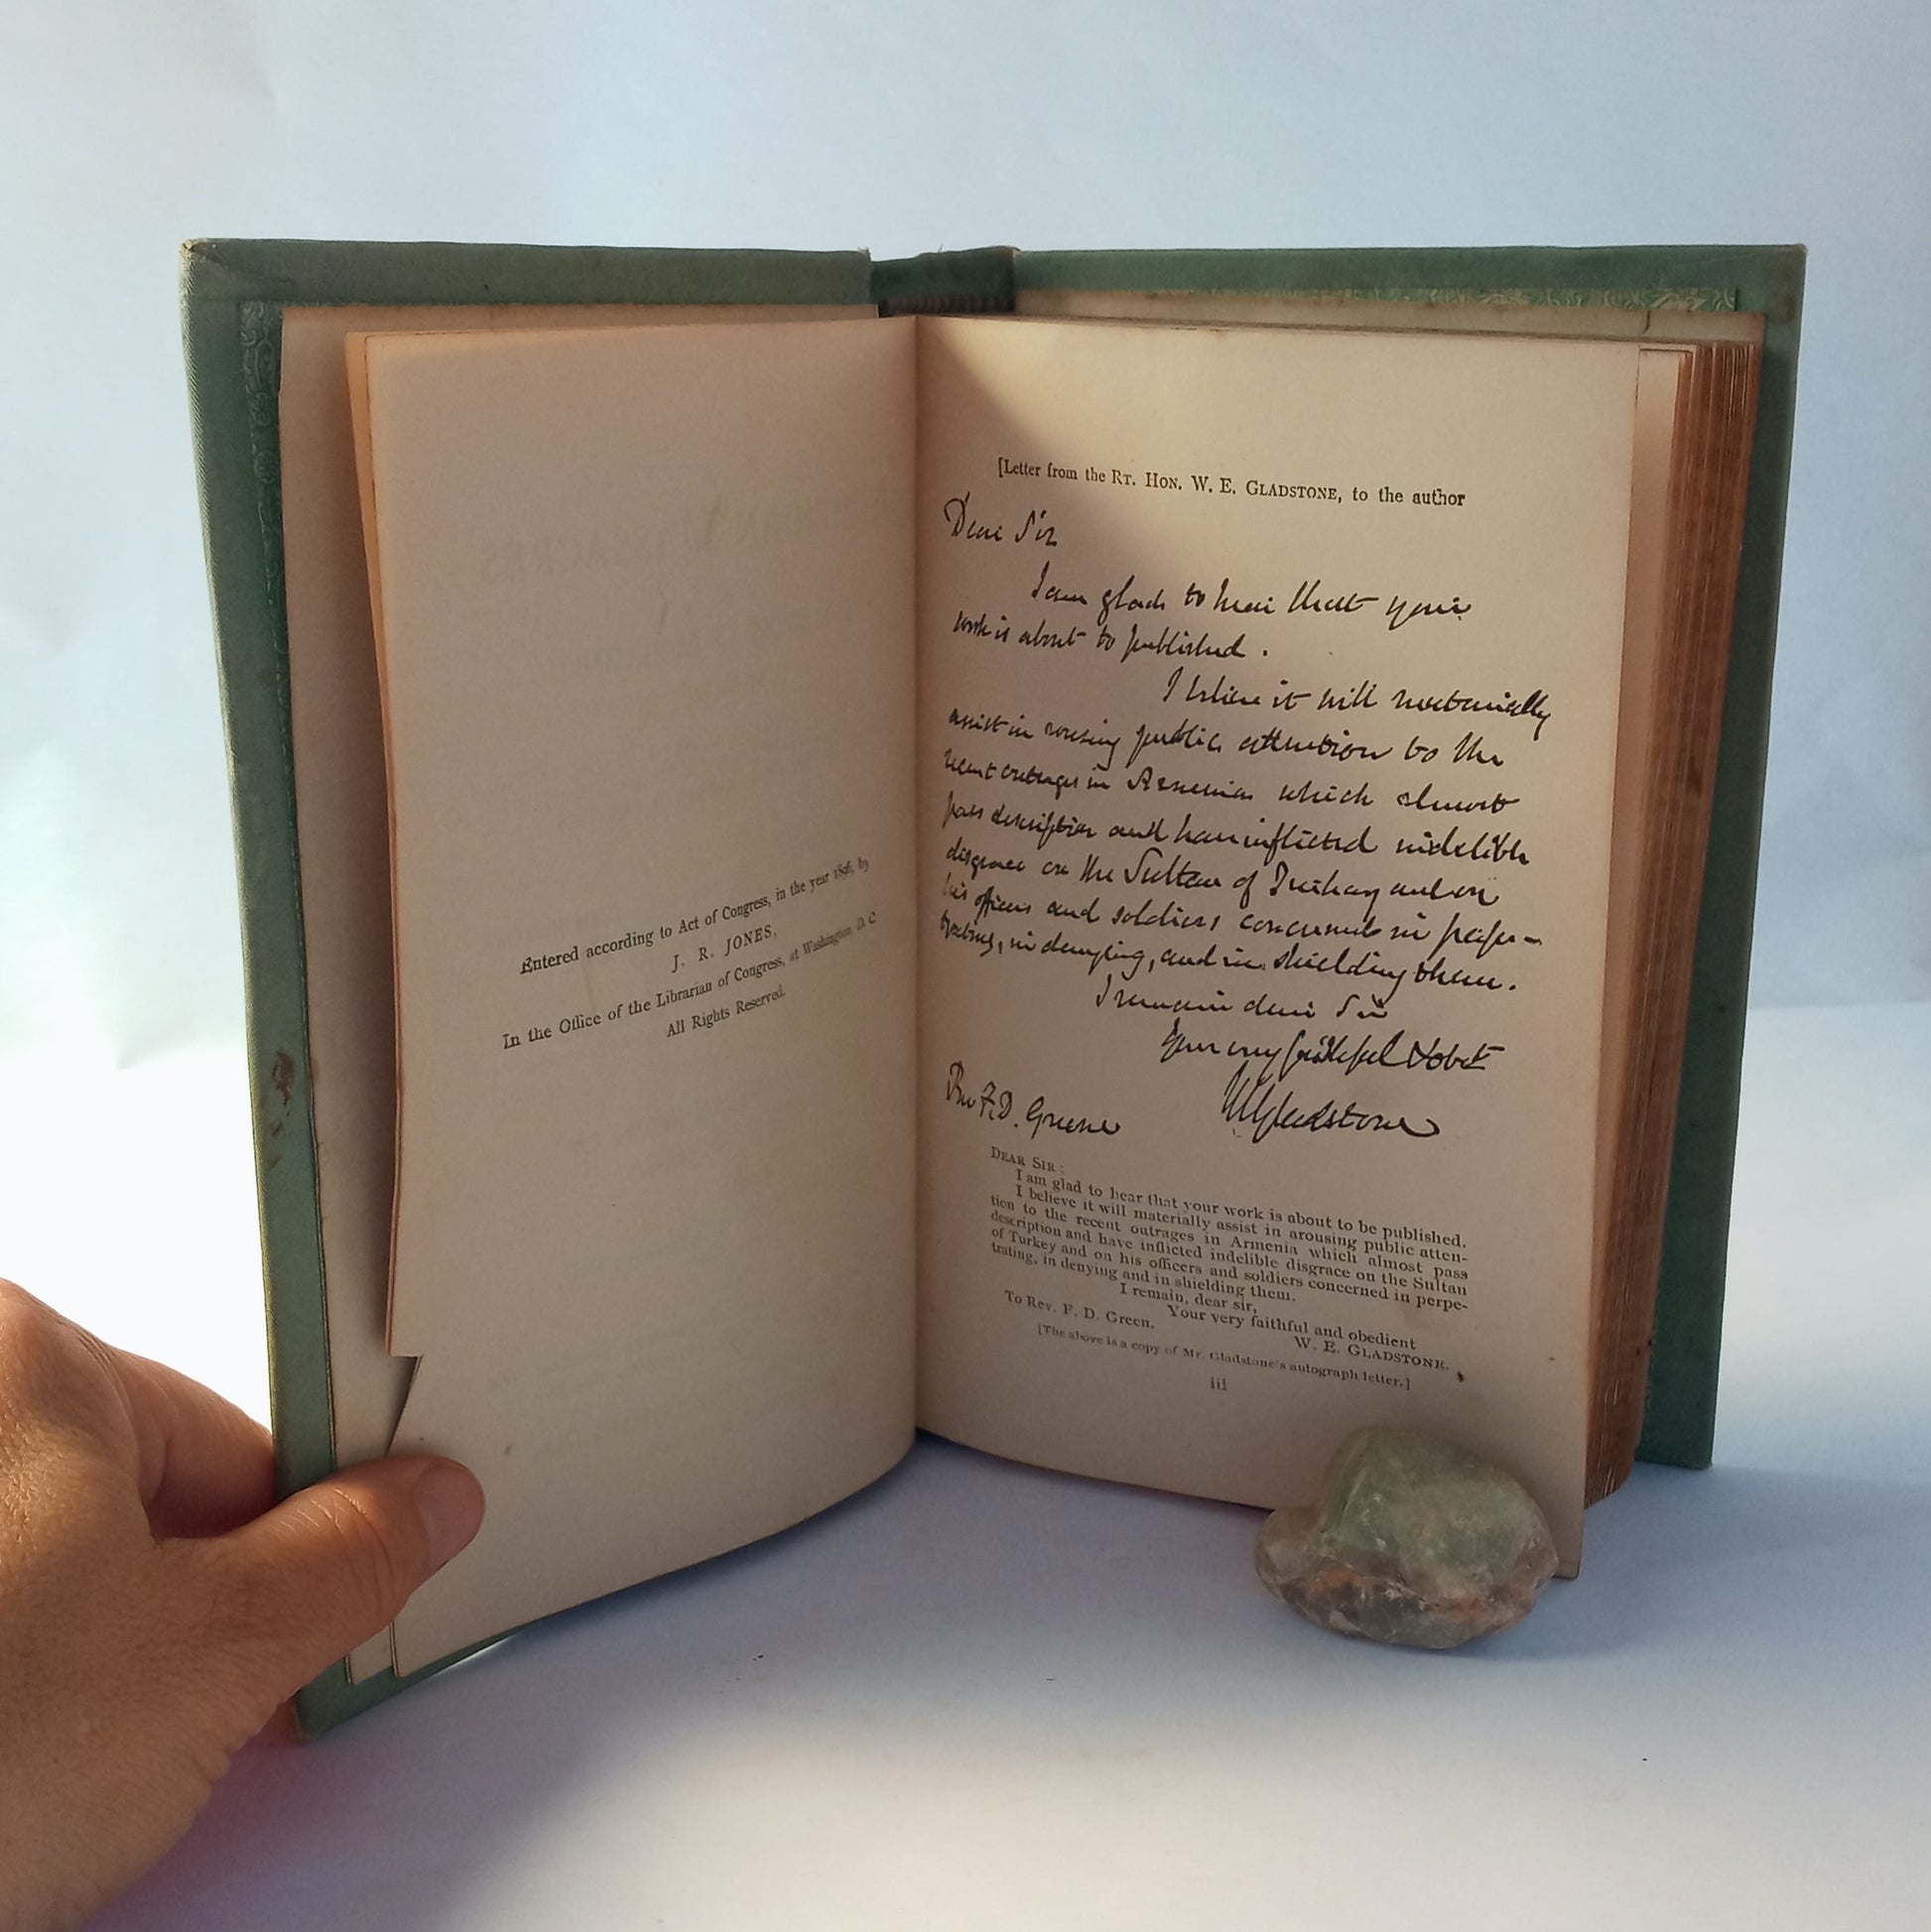 Entered according to Act of Congress, in the year 1896, by
J. R. JONES,
In the Office of the Librarian of Congress, at Washington, D. C.
All Rights Reserved.
[Letter from the RT. HON. W. E. GLADSTONE, to the author
Dear Sir
I am glad to hear that your
work is about to published.
I believe it will materially
assist in rousing public attention to the
recent outrages in Armenia which almost
pass description and have inflicted indelible
disgrace on the Sultan of Turkey and on
his officers and soldiers concerned in perpe-
trating, in denying, and in shielding them.
I remain dear Sir
Your very faithful & obedt
WEGladstone
Rev F.D. Greene
DEAR SIR:
I am glad to hear that your work is about to be published.
I believe it will materially assist in arousing public atten-
tion to the recent outrages in Armenia which almost pass
description and have inflicted indelible disgrace on the Sultan
of Turkey and on his officers and soldiers concerned in perpe-
trating, in denying and in shielding them.
I remain, dear sir,
Your very faithful and obedient
To Rev. F. D. Green.
W. E. GLADSTONE.
[The above is a copy of Mr. Gladstone's autograph letter.]
iii